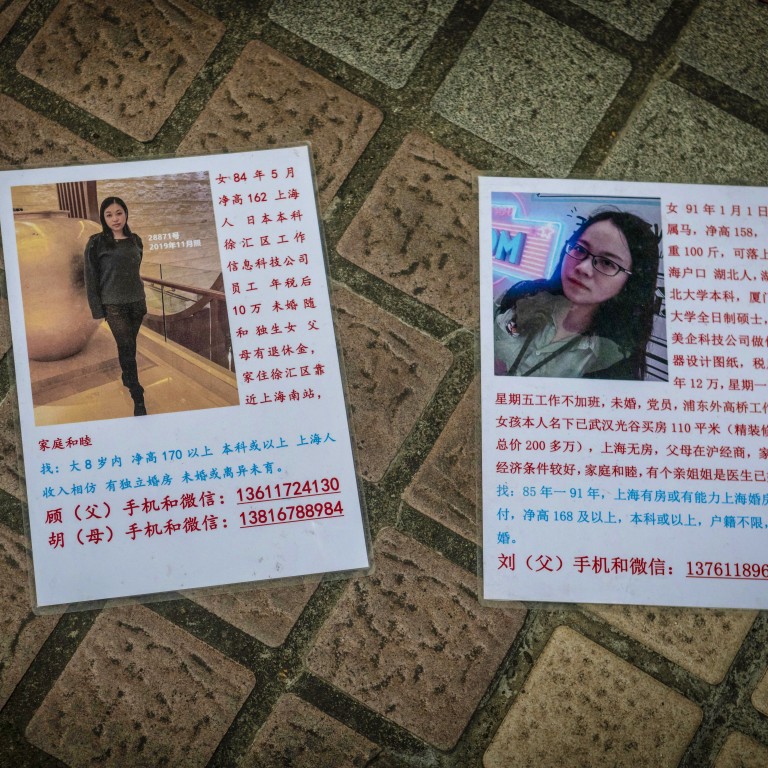 女 84 年 5 月
净高 162 上海
人 日本本科
徐汇区工作
信息科技公司
员工 年税后
10 万 未婚 随
和 独生女 父
母有退休金，
家住徐汇区靠
近上海南站，
家庭和睦
找：大 8 岁内 净高 170 以上 本科或以上 上海人
收入相仿 有独立婚房 未婚或离异未育。
顾（父）手机和微信：13611724130
胡（母）手机和微信：13816788984
28871号
2019年11月照
女 91 年 1 月 1 日
属马，净高 158，
重 100 斤，可落上
海户口 湖北人，湖
北大学本科，厦门
大学全日制硕士，
美企科技公司做
器设计图纸，税
年 12 万，星期一
星期五工作不加班，未婚，党员，浦东外高桥工作
女孩本人名下已武汉光谷买房 110 平米（精装修
总价 200 多万），上海无房，父母在沪经商，家
经济条件较好，家庭和睦，有个亲姐姐是医生已
找：85 年一 91 年，上海有房或有能力上海婚房
付，净高 168 及以上，本科或以上，户籍不限，
婚。
刘（父）手机和微信：137611896